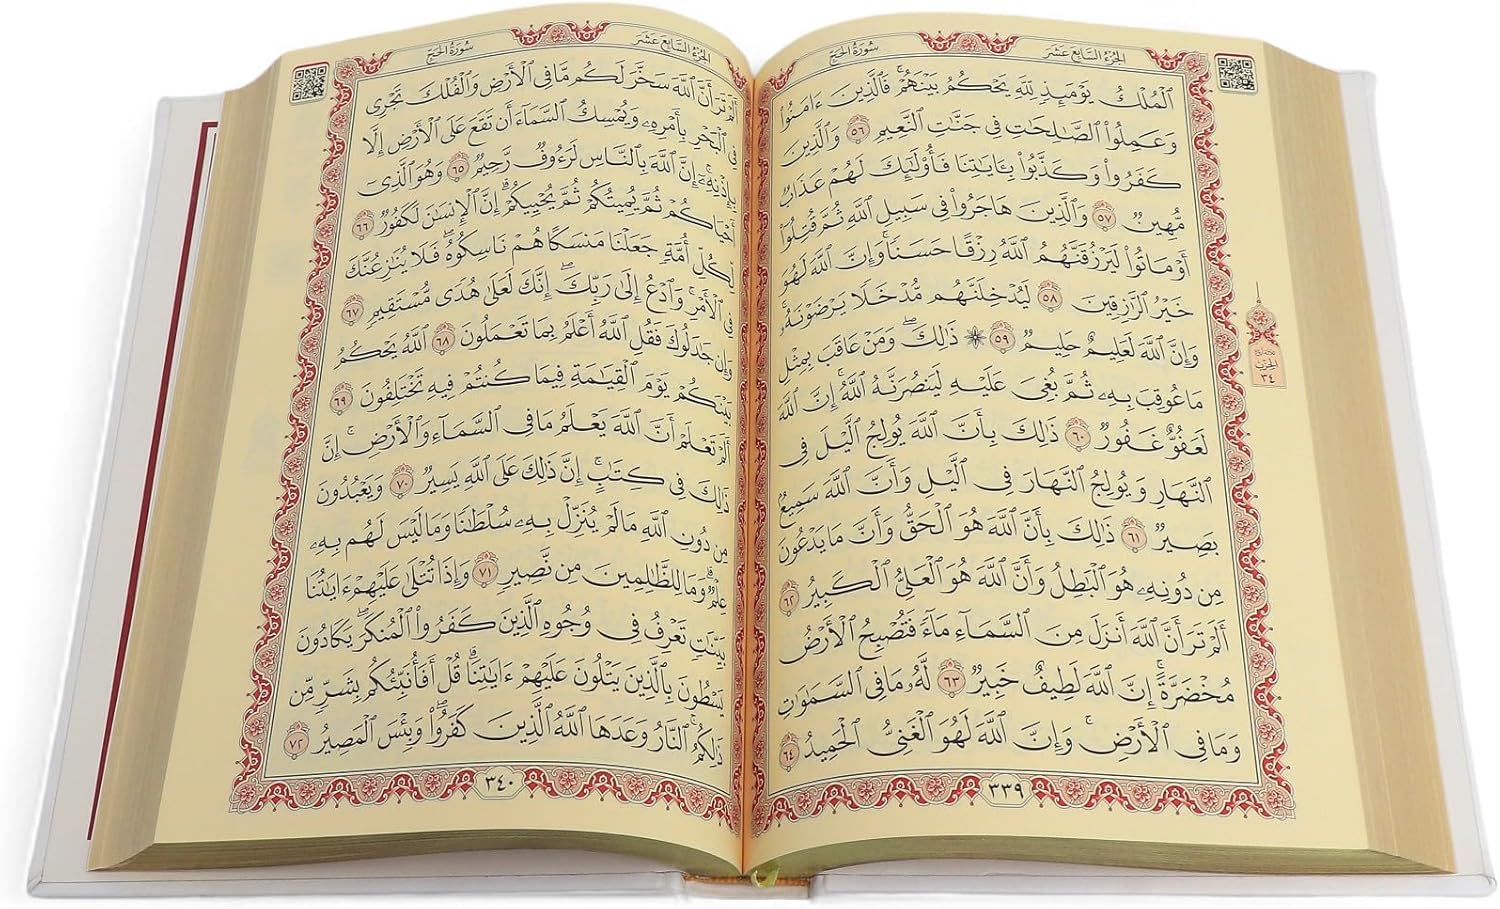 الجزء السابع عشر
سورة الحج
ٱلۡمُلۡكُ يَوۡمَئِذٖ لِّلَّهِ يَحۡكُمُ بَيۡنَهُمۡۚ فَٱلَّذِينَ ءَامَنُواْ
وَعَمِلُواْ ٱلصَّٰلِحَٰتِ فِي جَنَّٰتِ ٱلنَّعِيمِ ٥٦ وَٱلَّذِينَ
كَفَرُواْ وَكَذَّبُواْ بِـَٔايَٰتِنَا فَأُوْلَٰٓئِكَ لَهُمۡ عَذَابٞ
مُّهِينٞ ٥٧ وَٱلَّذِينَ هَاجَرُواْ فِي سَبِيلِ ٱللَّهِ ثُمَّ قُتِلُوٓاْ
أَوۡ مَاتُواْ لَيَرۡزُقَنَّهُمُ ٱللَّهُ رِزۡقًا حَسَنٗاۚ وَإِنَّ ٱللَّهَ لَهُوَ
خَيۡرُ ٱلرَّٰزِقِينَ ٥٨ لَيُدۡخِلَنَّهُم مُّدۡخَلٗا يَرۡضَوۡنَهُۥۚ
وَإِنَّ ٱللَّهَ لَعَلِيمٌ حَلِيمٞ ٥٩ ۞ ذَٰلِكَۖ وَمَنۡ عَاقَبَ بِمِثۡلِ
مَا عُوقِبَ بِهِۦ ثُمَّ بُغِيَ عَلَيۡهِ لَيَنصُرَنَّهُ ٱللَّهُۚ إِنَّ ٱللَّهَ
لَعَفُوٌّ غَفُورٞ ٦٠ ذَٰلِكَ بِأَنَّ ٱللَّهَ يُولِجُ ٱلَّيۡلَ فِي
ٱلنَّهَارِ وَيُولِجُ ٱلنَّهَارَ فِي ٱلَّيۡلِ وَأَنَّ ٱللَّهَ سَمِيعُۢ
بَصِيرٞ ٦١ ذَٰلِكَ بِأَنَّ ٱللَّهَ هُوَ ٱلۡحَقُّ وَأَنَّ مَا يَدۡعُونَ
مِن دُونِهِۦ هُوَ ٱلۡبَٰطِلُ وَأَنَّ ٱللَّهَ هُوَ ٱلۡعَلِيُّ ٱلۡكَبِيرُ ٦٢
أَلَمۡ تَرَ أَنَّ ٱللَّهَ أَنزَلَ مِنَ ٱلسَّمَآءِ مَآءٗ فَتُصۡبِحُ ٱلۡأَرۡضُ
مُخۡضَرَّةًۚ إِنَّ ٱللَّهَ لَطِيفٌ خَبِيرٞ ٦٣ لَّهُۥ مَا فِي ٱلسَّمَٰوَٰتِ
وَمَا فِي ٱلۡأَرۡضِۚ وَإِنَّ ٱللَّهَ لَهُوَ ٱلۡغَنِيُّ ٱلۡحَمِيدُ ٦٤
٣٣٩
الحزب
٣٤
الجزء السابع عشر
سورة الحج
أَلَمۡ تَرَ أَنَّ ٱللَّهَ سَخَّرَ لَكُم مَّا فِي ٱلۡأَرۡضِ وَٱلۡفُلۡكَ تَجۡرِي
فِي ٱلۡبَحۡرِ بِأَمۡرِهِۦ وَيُمۡسِكُ ٱلسَّمَآءَ أَن تَقَعَ عَلَى ٱلۡأَرۡضِ إِلَّا
بِإِذۡنِهِۦٓۚ إِنَّ ٱللَّهَ بِٱلنَّاسِ لَرَءُوفٞ رَّحِيمٞ ٦٥ وَهُوَ ٱلَّذِيٓ
أَحۡيَاكُمۡ ثُمَّ يُمِيتُكُمۡ ثُمَّ يُحۡيِيكُمۡۗ إِنَّ ٱلۡإِنسَٰنَ لَكَفُورٞ ٦٦
لِّكُلِّ أُمَّةٖ جَعَلۡنَا مَنسَكًا هُمۡ نَاسِكُوهُۖ فَلَا يُنَٰزِعُنَّكَ
فِي ٱلۡأَمۡرِۚ وَٱدۡعُ إِلَىٰ رَبِّكَۖ إِنَّكَ لَعَلَىٰ هُدٗى مُّسۡتَقِيمٖ ٦٧
وَإِن جَٰدَلُوكَ فَقُلِ ٱللَّهُ أَعۡلَمُ بِمَا تَعۡمَلُونَ ٦٨ ٱللَّهُ يَحۡكُمُ
بَيۡنَكُمۡ يَوۡمَ ٱلۡقِيَٰمَةِ فِيمَا كُنتُمۡ فِيهِ تَخۡتَلِفُونَ ٦٩
أَلَمۡ تَعۡلَمۡ أَنَّ ٱللَّهَ يَعۡلَمُ مَا فِي ٱلسَّمَآءِ وَٱلۡأَرۡضِۚ إِنَّ
ذَٰلِكَ فِي كِتَٰبٍۚ إِنَّ ذَٰلِكَ عَلَى ٱللَّهِ يَسِيرٞ ٧٠ وَيَعۡبُدُونَ
مِن دُونِ ٱللَّهِ مَا لَمۡ يُنَزِّلۡ بِهِۦ سُلۡطَٰنٗا وَمَا لَيۡسَ لَهُم بِهِۦ
عِلۡمٞۗ وَمَا لِلظَّٰلِمِينَ مِن نَّصِيرٖ ٧١ وَإِذَا تُتۡلَىٰ عَلَيۡهِمۡ ءَايَٰتُنَا
بَيِّنَٰتٖ تَعۡرِفُ فِي وُجُوهِ ٱلَّذِينَ كَفَرُواْ ٱلۡمُنكَرَۖ يَكَادُونَ
يَسۡطُونَ بِٱلَّذِينَ يَتۡلُونَ عَلَيۡهِمۡ ءَايَٰتِنَاۗ قُلۡ أَفَأُنَبِّئُكُم بِشَرّٖ مِّن
ذَٰلِكُمُۚ ٱلنَّارُ وَعَدَهَا ٱللَّهُ ٱلَّذِينَ كَفَرُواْۖ وَبِئۡسَ ٱلۡمَصِيرُ ٧٢
٣٤٠